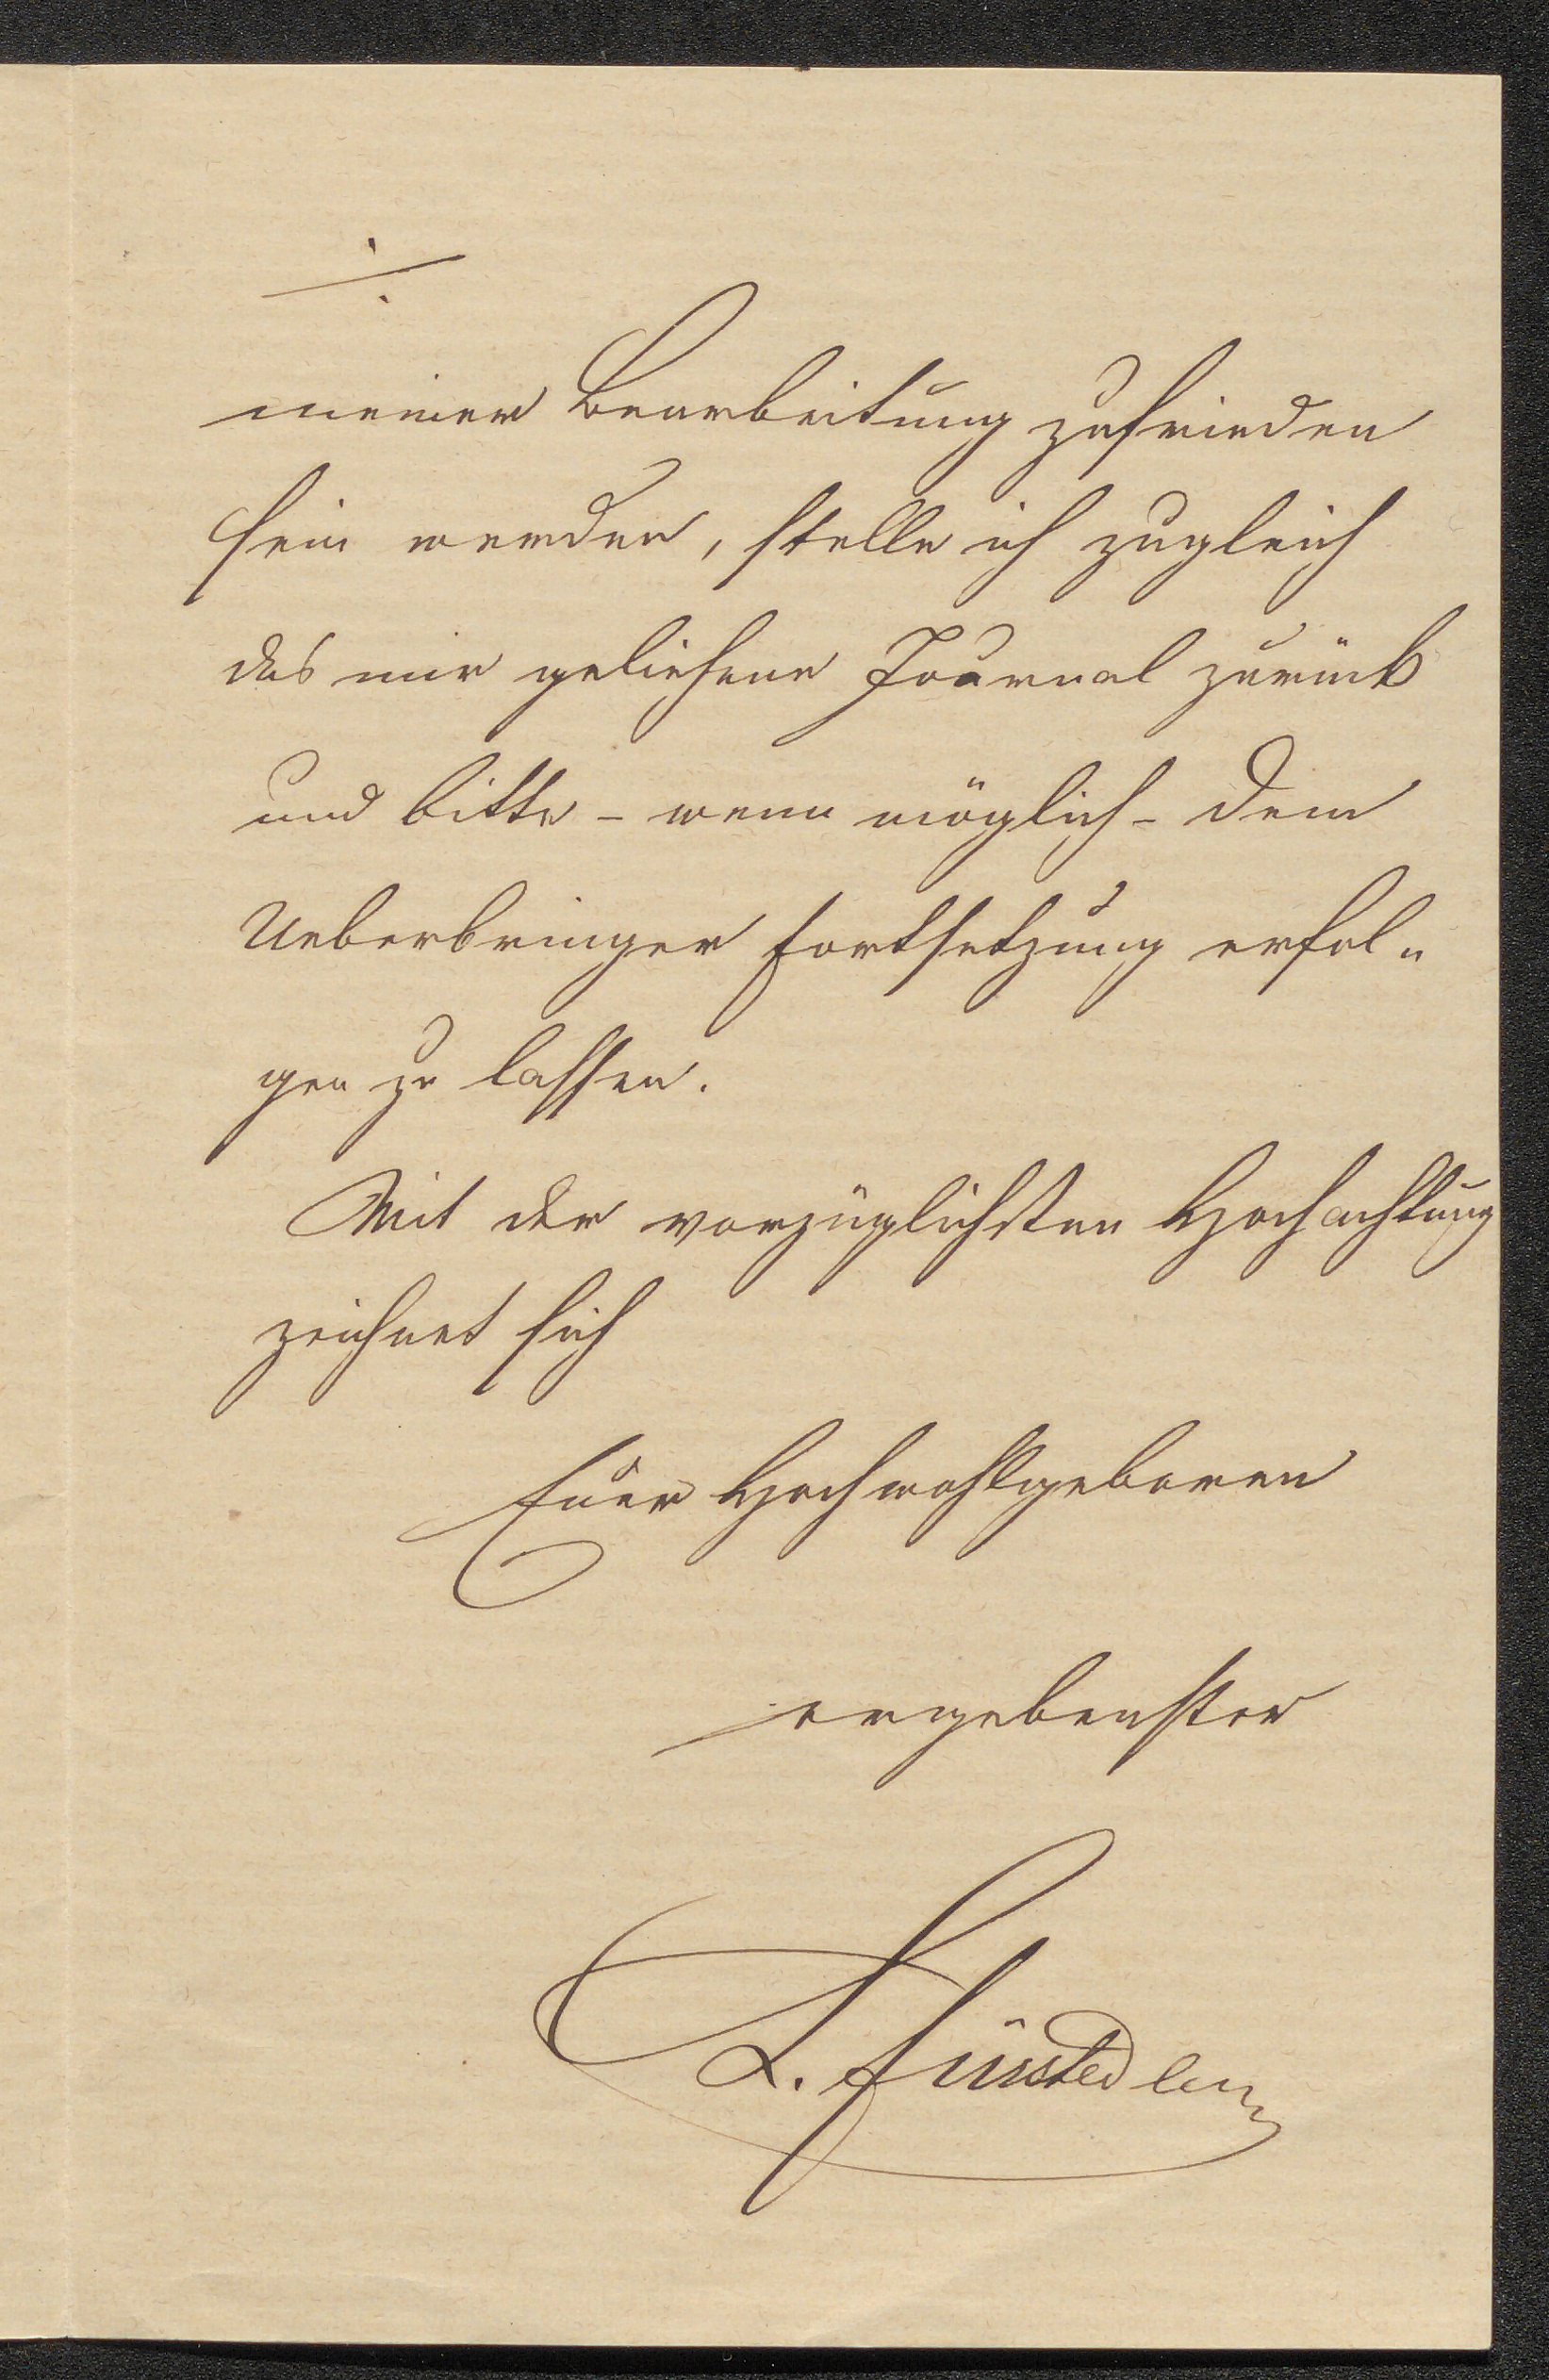 ./.
meiner Bearbeitung zufrieden
sein werden, stelle ich zugleich
das mir geliehene Journal zurück
und bitte – wenn möglich – dem
Ueberbringer Fortsetzung erfol„
gen zu lassen.
Mit der vorzüglichsten Hochachtung
zeichnet sich
Euer Hochwohlgeboren
ergebenster